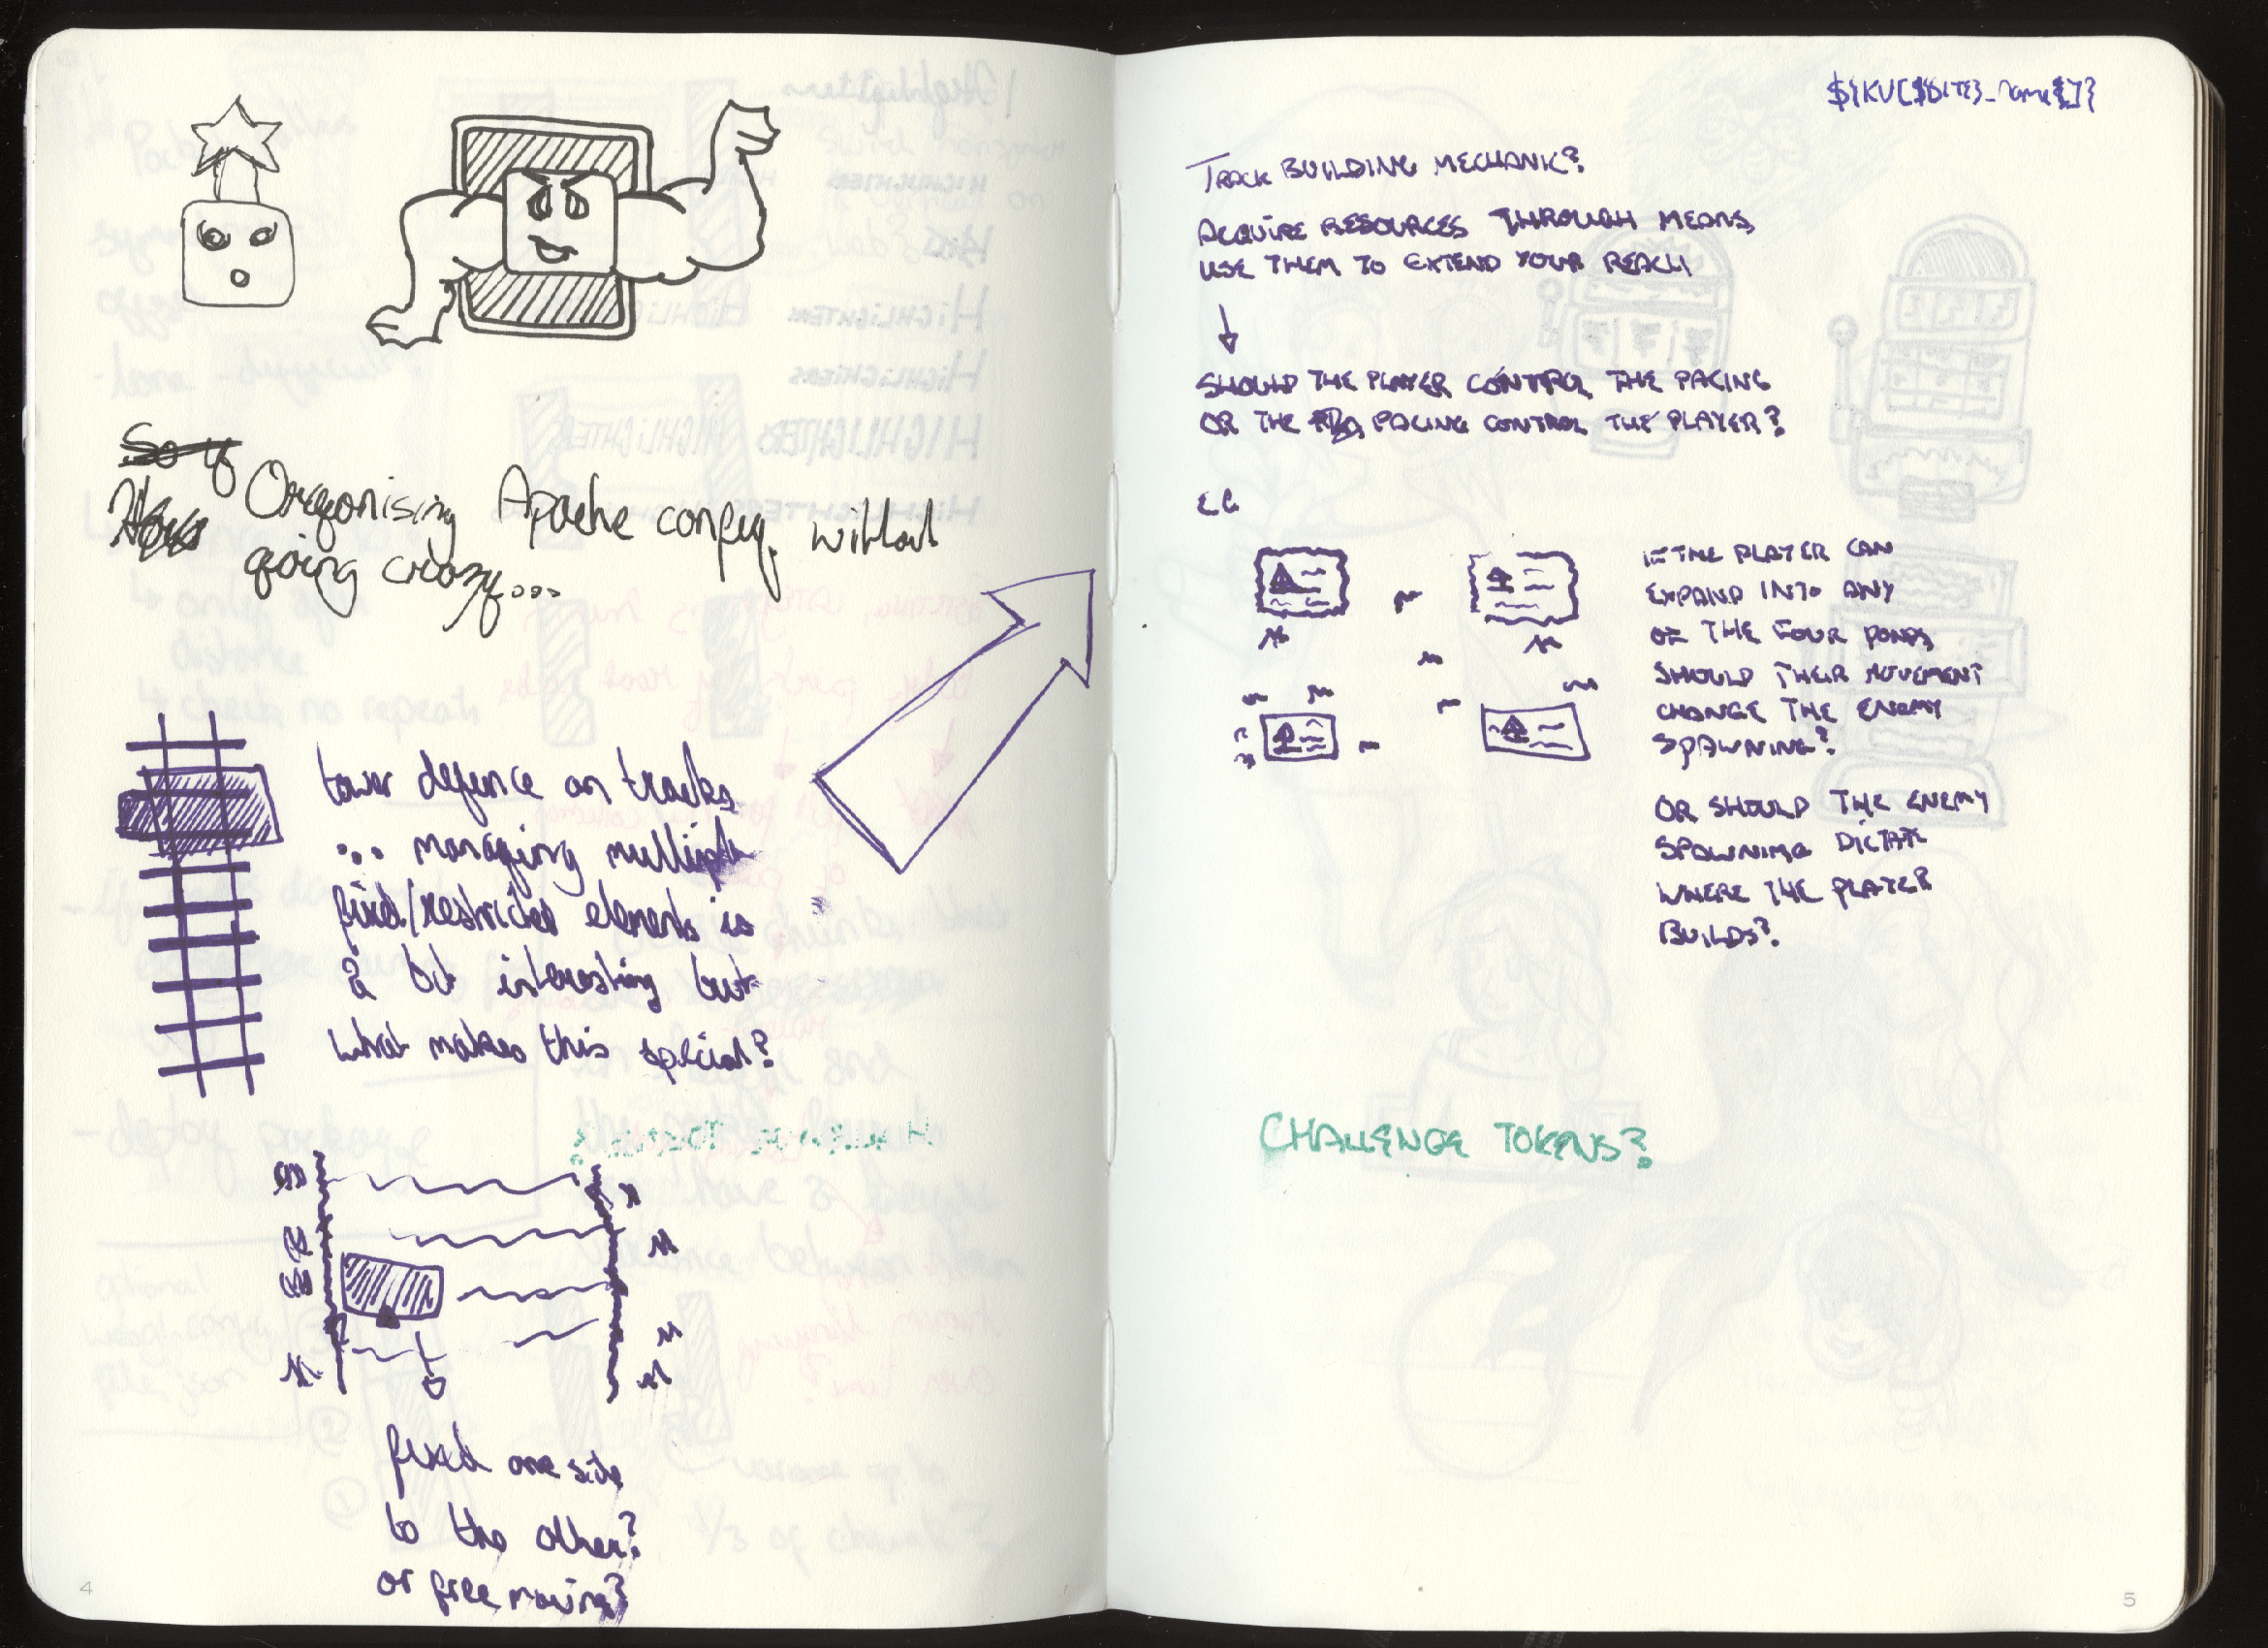 So if
How Oregonising Apache config, without
going crazy...
tower defence on tracks
... managing multiple
fixed/restricted elements is
a bit interesting but
what makes this special?
fixed one side
to the other?
or free moving?
4
TRACK BUILDING MECHANIK?
ACQUIRE RESOURCES THROUGH MEANS,
USE THEM TO EXTEND YOUR REACH
SHOULD THE PLAYER CONTROL THE PACING
OR THE PACING CONTROL THE PLAYER?
EG
IF THE PLAYER CAN
EXPAND INTO ANY
OF THE FOUR PONDS,
SHOULD THEIR MOVEMENT
CHANGE THE ENEMY
SPAWNING?
OR SHOULD THE ENEMY
SPAWNING DICTATE
WHERE THE PLAYER
BUILDS?
CHALLENGE TOKENS?
5